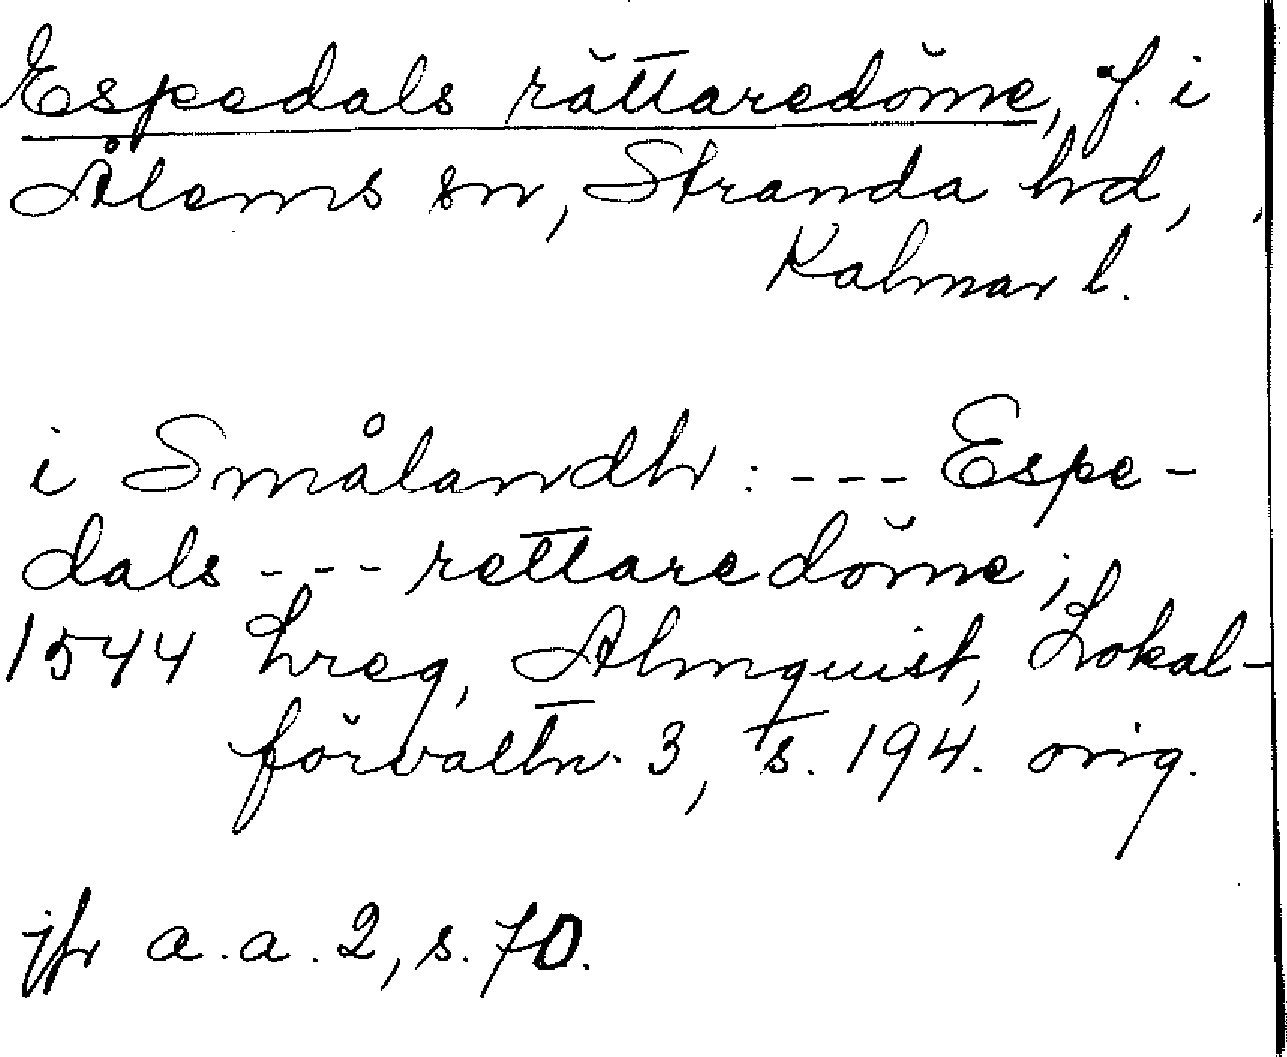 Espedals rättaredöme, f. i
Ålems sn, Stranda hd,
Kalmar l.
i Smålandh: --- Espe-
dals --- rettaredöme;
1544 Lreg, Almquist, Lokal-
förvaltn. 3, s. 194. orig.
jfr a.a. 2, s. 70.